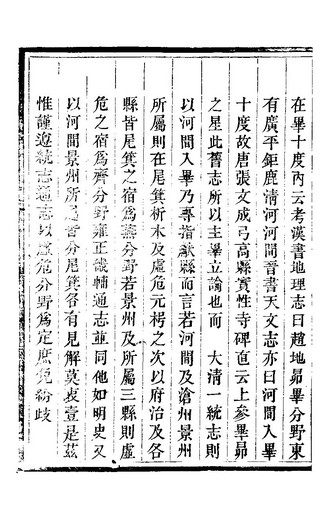 在畢十度內云考漢書地理志曰趙地昴畢分野東
有廣平鉅鹿清河河間晉書天文志亦曰河間入畢
十度故唐張文成弓高縣實性寺碑直云上參畢昴
之星此舊志所以主畢立論也而 大清一統志則
以河間入畢乃專指獻縣而言若河間及滄州景州
所屬則在尾箕析木及虛危元枵之次以府治及各
縣皆尾箕之宿為燕分野若景州及所屬三縣則虛
危之宿為齊分野雍正畿輔通志並同他如明史又
以河間景州所屬皆分尾箕各有見解莫衷壹是茲
惟謹遵統志通志以虛危分野為定庶免紛歧